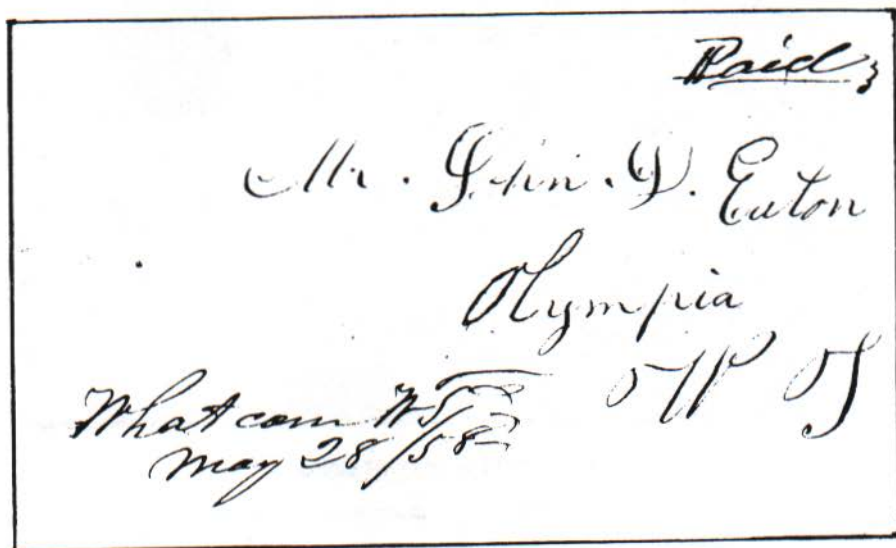 Paid
Mr. John D. Eaton
Olympia
W T
Whatcom WT
May 28/58